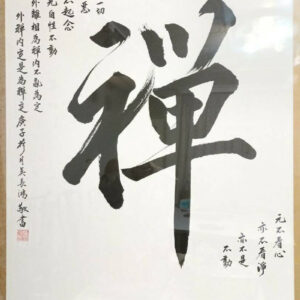 元不看心
亦不看淨
亦不是
不動
禪
一切
不起念
見自性不動
外離相為禪內不亂為定
外禪內定是為禪定庚子月吳長鴻敬書